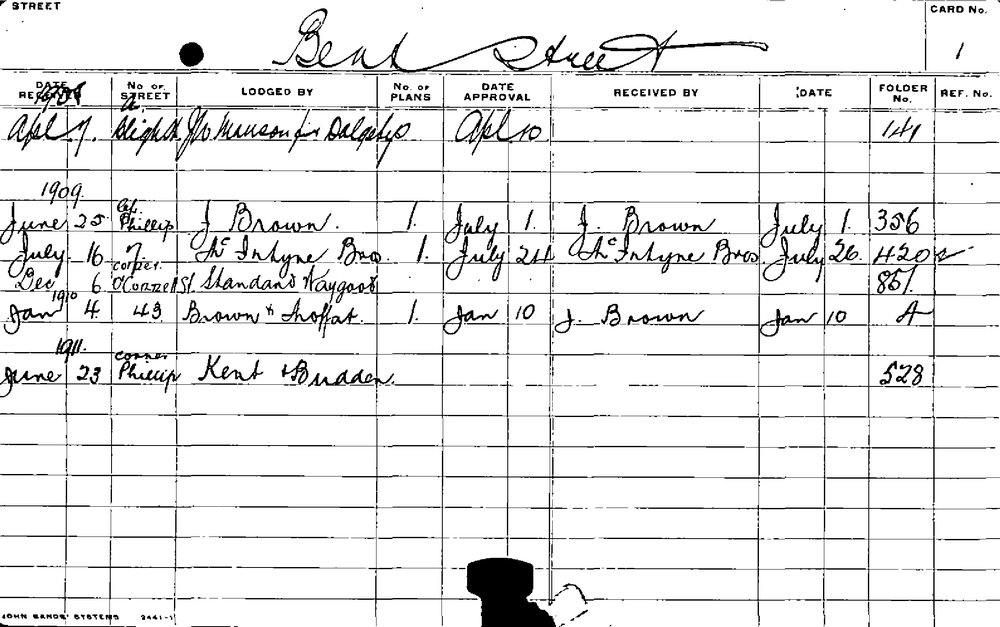 STREET
CARD No.
Bent Street
1
DATE RECEIVED No OF STREET LODGED BY No. OF PLANS DATE APPROVAL RECEIVED BY DATE FOLDER No. REF. No.
Apl 7. Bligh St Jno Manson for Dalgetys Apl 10 141
1909.
June 25 Phillip J Brown. 1. July 1. J. Brown July 1. 356
July 16 7 McIntyre Bros 1. July 24 McIntyre Bros July 26. 420
Dec 6 corner O'Connell St Standard Waygood 851
1910
Jan 4 43 Brown & Moffat. 1. Jan 10 J. Brown Jan 10 A
1911.
June 23 corner Phillip Kent & Budden. 528
JOHN SANDS' SYSTEMS 2441-1